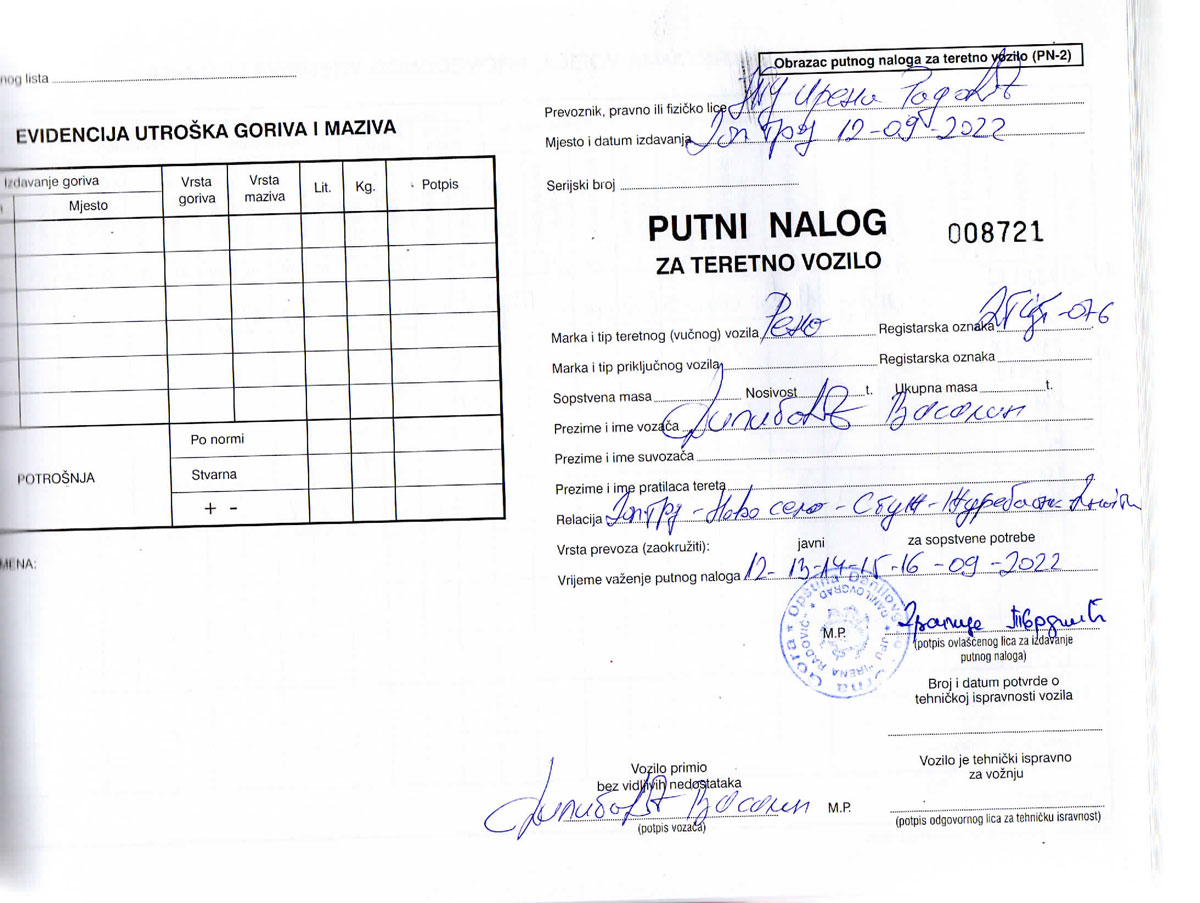 nog lista
EVIDENCIJA UTROŠKA GORIVA I MAZIVA
Izdavanje goriva
Mjesto
Vrsta goriva
Vrsta maziva
Lit.
Kg.
Potpis
Po normi
POTROŠNJA
Stvarna
+ -
MENA:
Obrazac putnog naloga za teretno vozilo (PN-2)
Prevoznik, pravno ili fizičko lice Ирена Радовић
Mjesto i datum izdavanja 12-09-2022
Serijski broj
PUTNI NALOG 008721
ZA TERETNO VOZILO
Marka i tip teretnog (vučnog) vozila Рено Registarska oznaka -076
Marka i tip priključnog vozila Registarska oznaka
Sopstvena masa Nosivost t. Ukupna masa t.
Prezime i ime vozača
Prezime i ime suvozača
Prezime i ime pratilaca tereta
Relacija - Ново село -
Vrsta prevoza (zaokružiti): javni za sopstvene potrebe
Vrijeme važenje putnog naloga 12-13-14-15-16-09-2022
M.P.
(potpis ovlašćenog lica za izdavanje
putnog naloga)
Crna Gora * Opština Danilovgrad
JPU "IRENA RADOVIĆ" * DANILOVGRAD
Broj i datum potvrde o
tehničkoj ispravnosti vozila
Vozilo je tehnički ispravno
za vožnju
Vozilo primio
bez vidljivih nedostataka
M.P.
(potpis vozača)
(potpis odgovornog lica za tehničku isravnost)